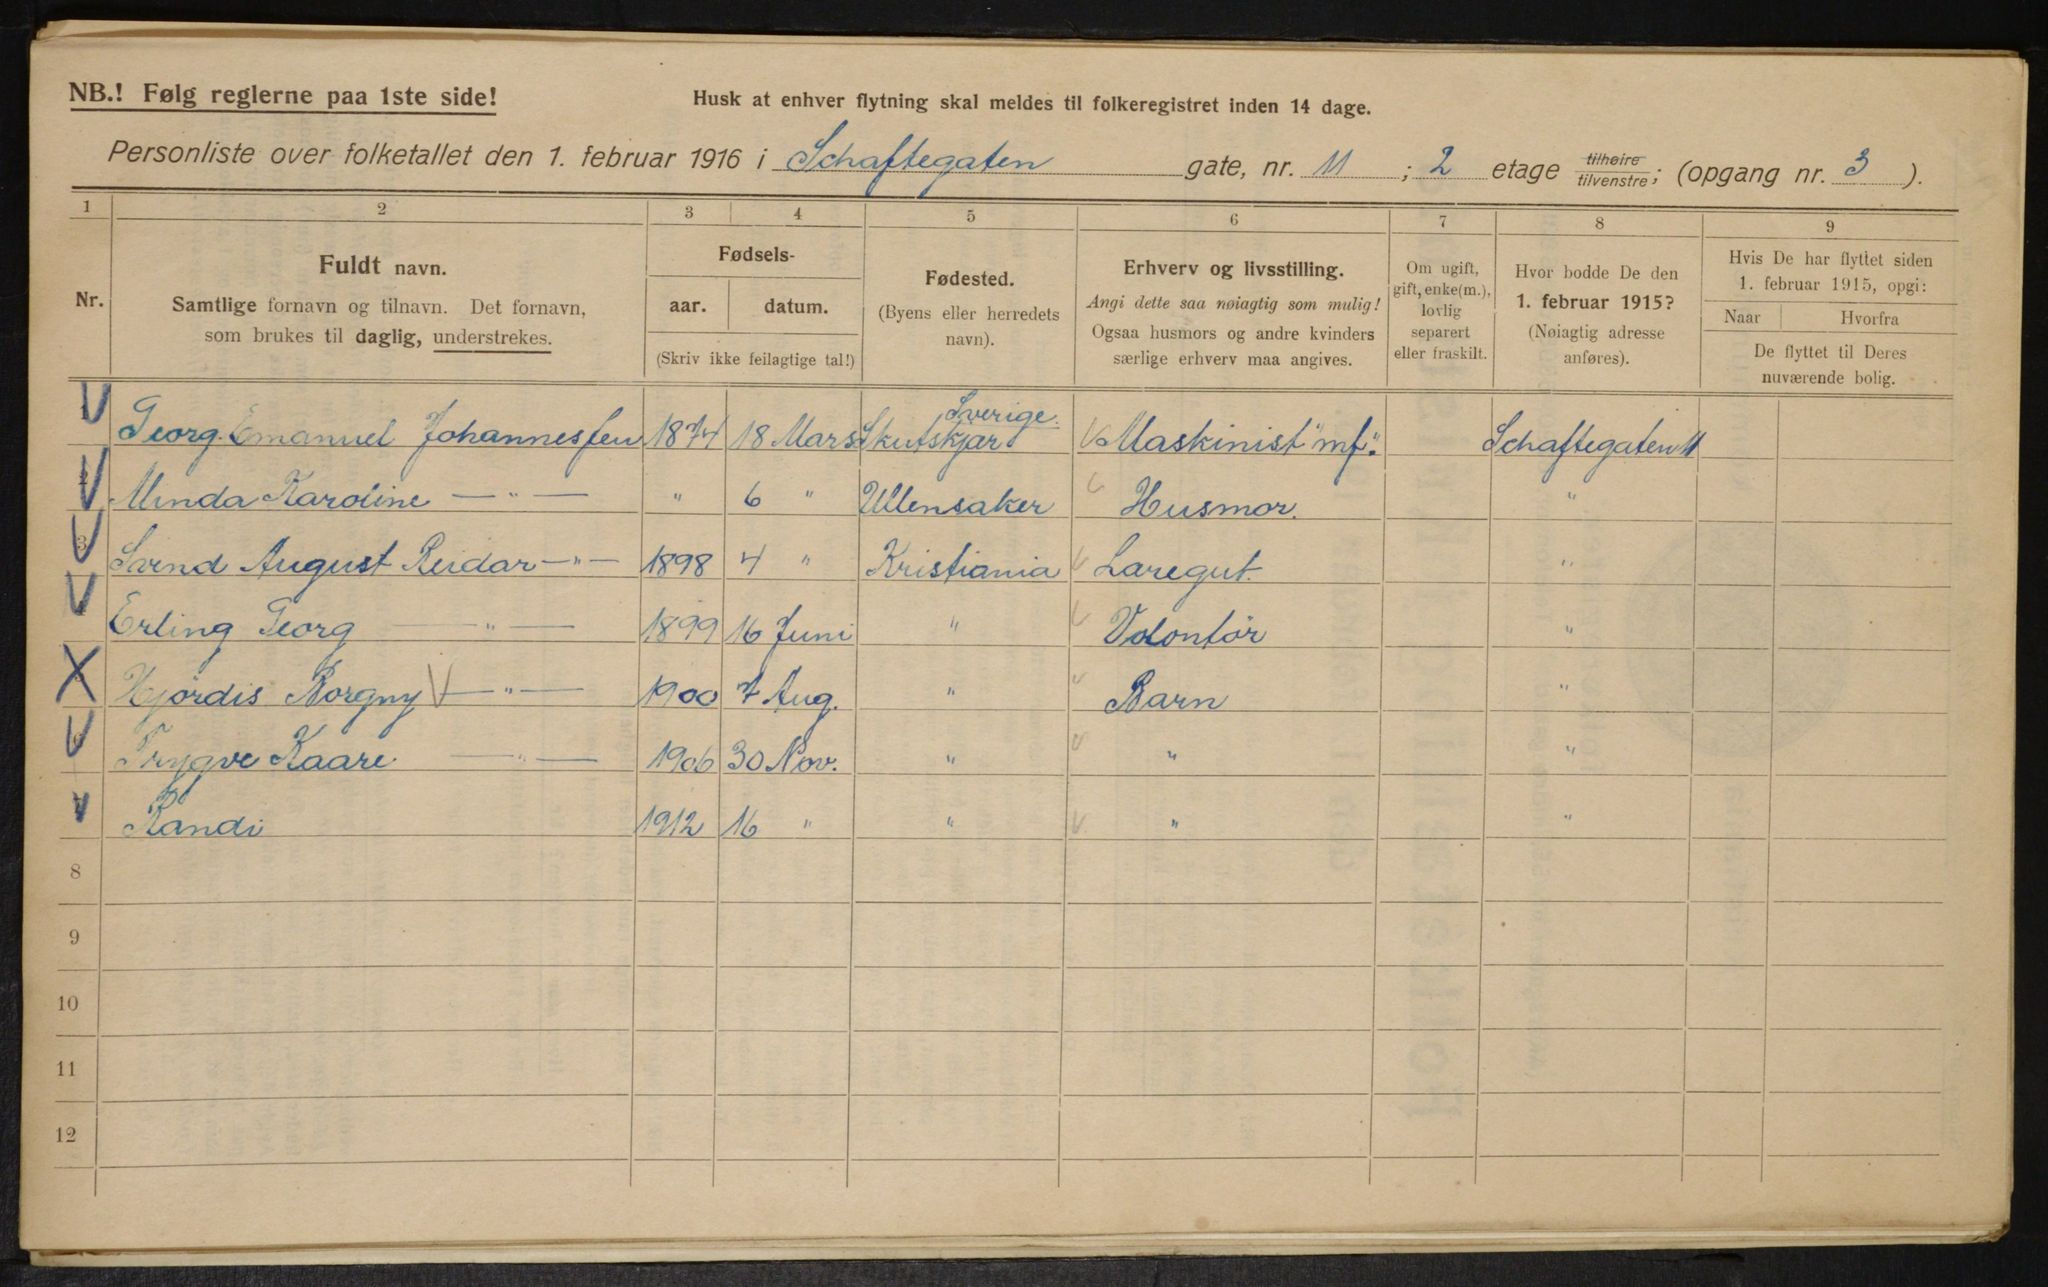 NB.! Følg reglerne paa 1ste side!
Husk at enhver flytning skal meldes til folkeregistret inden 14 dage.
Personliste over folketallet den 1. februar 1916 i Schaftegaten gate, nr. 11 ; 2 etage tilhøire/tilvenstre; (opgang nr. 3 ).
1 2 3 4 5 6 7 8 9
Nr.
Fuldt navn.
Samtlige fornavn og tilnavn. Det fornavn,
som brukes til daglig, understrekes.
Fødsels-
aar. datum.
(Skriv ikke feilagtige tal!)
Fødested.
(Byens eller herredets
navn).
Erhverv og livsstilling.
Angi dette saa nøiagtig som mulig!
Ogsaa husmors og andre kvinders
særlige erhverv maa angives.
Om ugift,
gift, enke(m.),
lovlig
separert
eller fraskilt.
Hvor bodde De den
1. februar 1915?
(Nøiagtig adresse
anføres).
Hvis De har flyttet siden
1. februar 1915, opgi:
Naar Hvorfra
De flyttet til Deres
nuværende bolig.
Sverige.
Georg. Emanuel Johannessen 1874 18 Mars Skutskjär Maskinist "mf". Schaftegaten 11
Minda Karoline — " — " 6 " Ullensaker Husmor. "
3 Svend August Reidar — " — 1898 4 " Kristiania Læregut. "
Erling Georg — " — 1899 16 Juni " Volontör "
Hjördis Borgny — " — 1900 7 Aug. " Barn "
Trygve Kaare — " — 1906 30 Nov. " " "
Randi 1912 16 " " " "
8
9
10
11
12